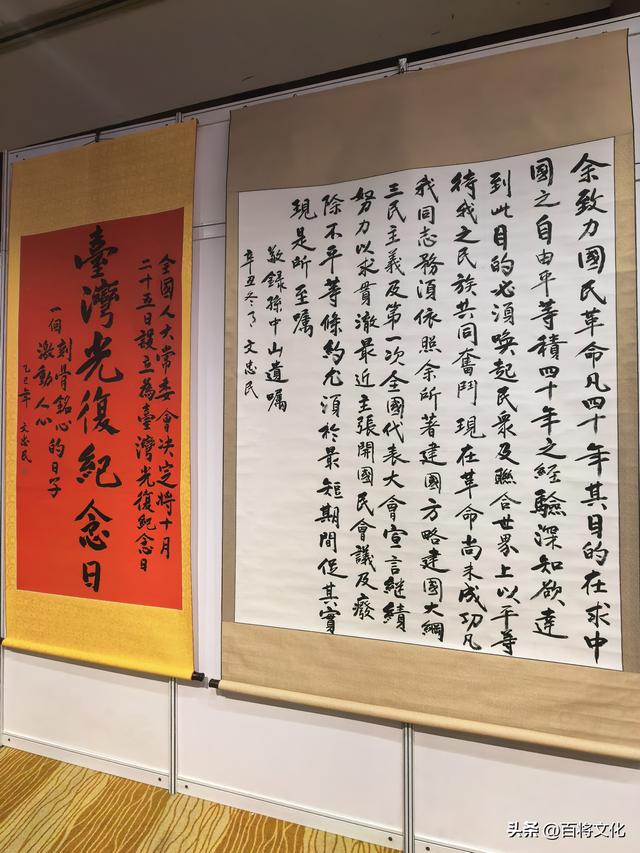 余致力國民革命凡四十年其目的在求中
國之自由平等積四十年之經驗深知欲達
到此目的必須喚起民衆及聯合世界上以平等
待我之民族共同奮鬥現在革命尚未成功凡
我同志務須依照余所著建國方略建國大綱
三民主義及第一次全國代表大會宣言繼續
努力以求貫澈最近主張開國民會議及廢
除不平等條約尤須於最短期間促其實
現是所至囑
敬錄孫中山遺囑
辛丑冬 文忠民
全國人大常委會决定將十月
二十五日設立為臺灣光復紀念日
臺灣光復紀念日
一個刻骨銘心的日子
激動人心
乙巳年 文忠民
头条 @百将文化